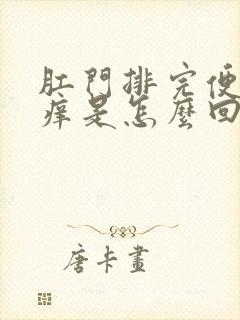 肛門排完便
痒是怎麼回
唐卡畫